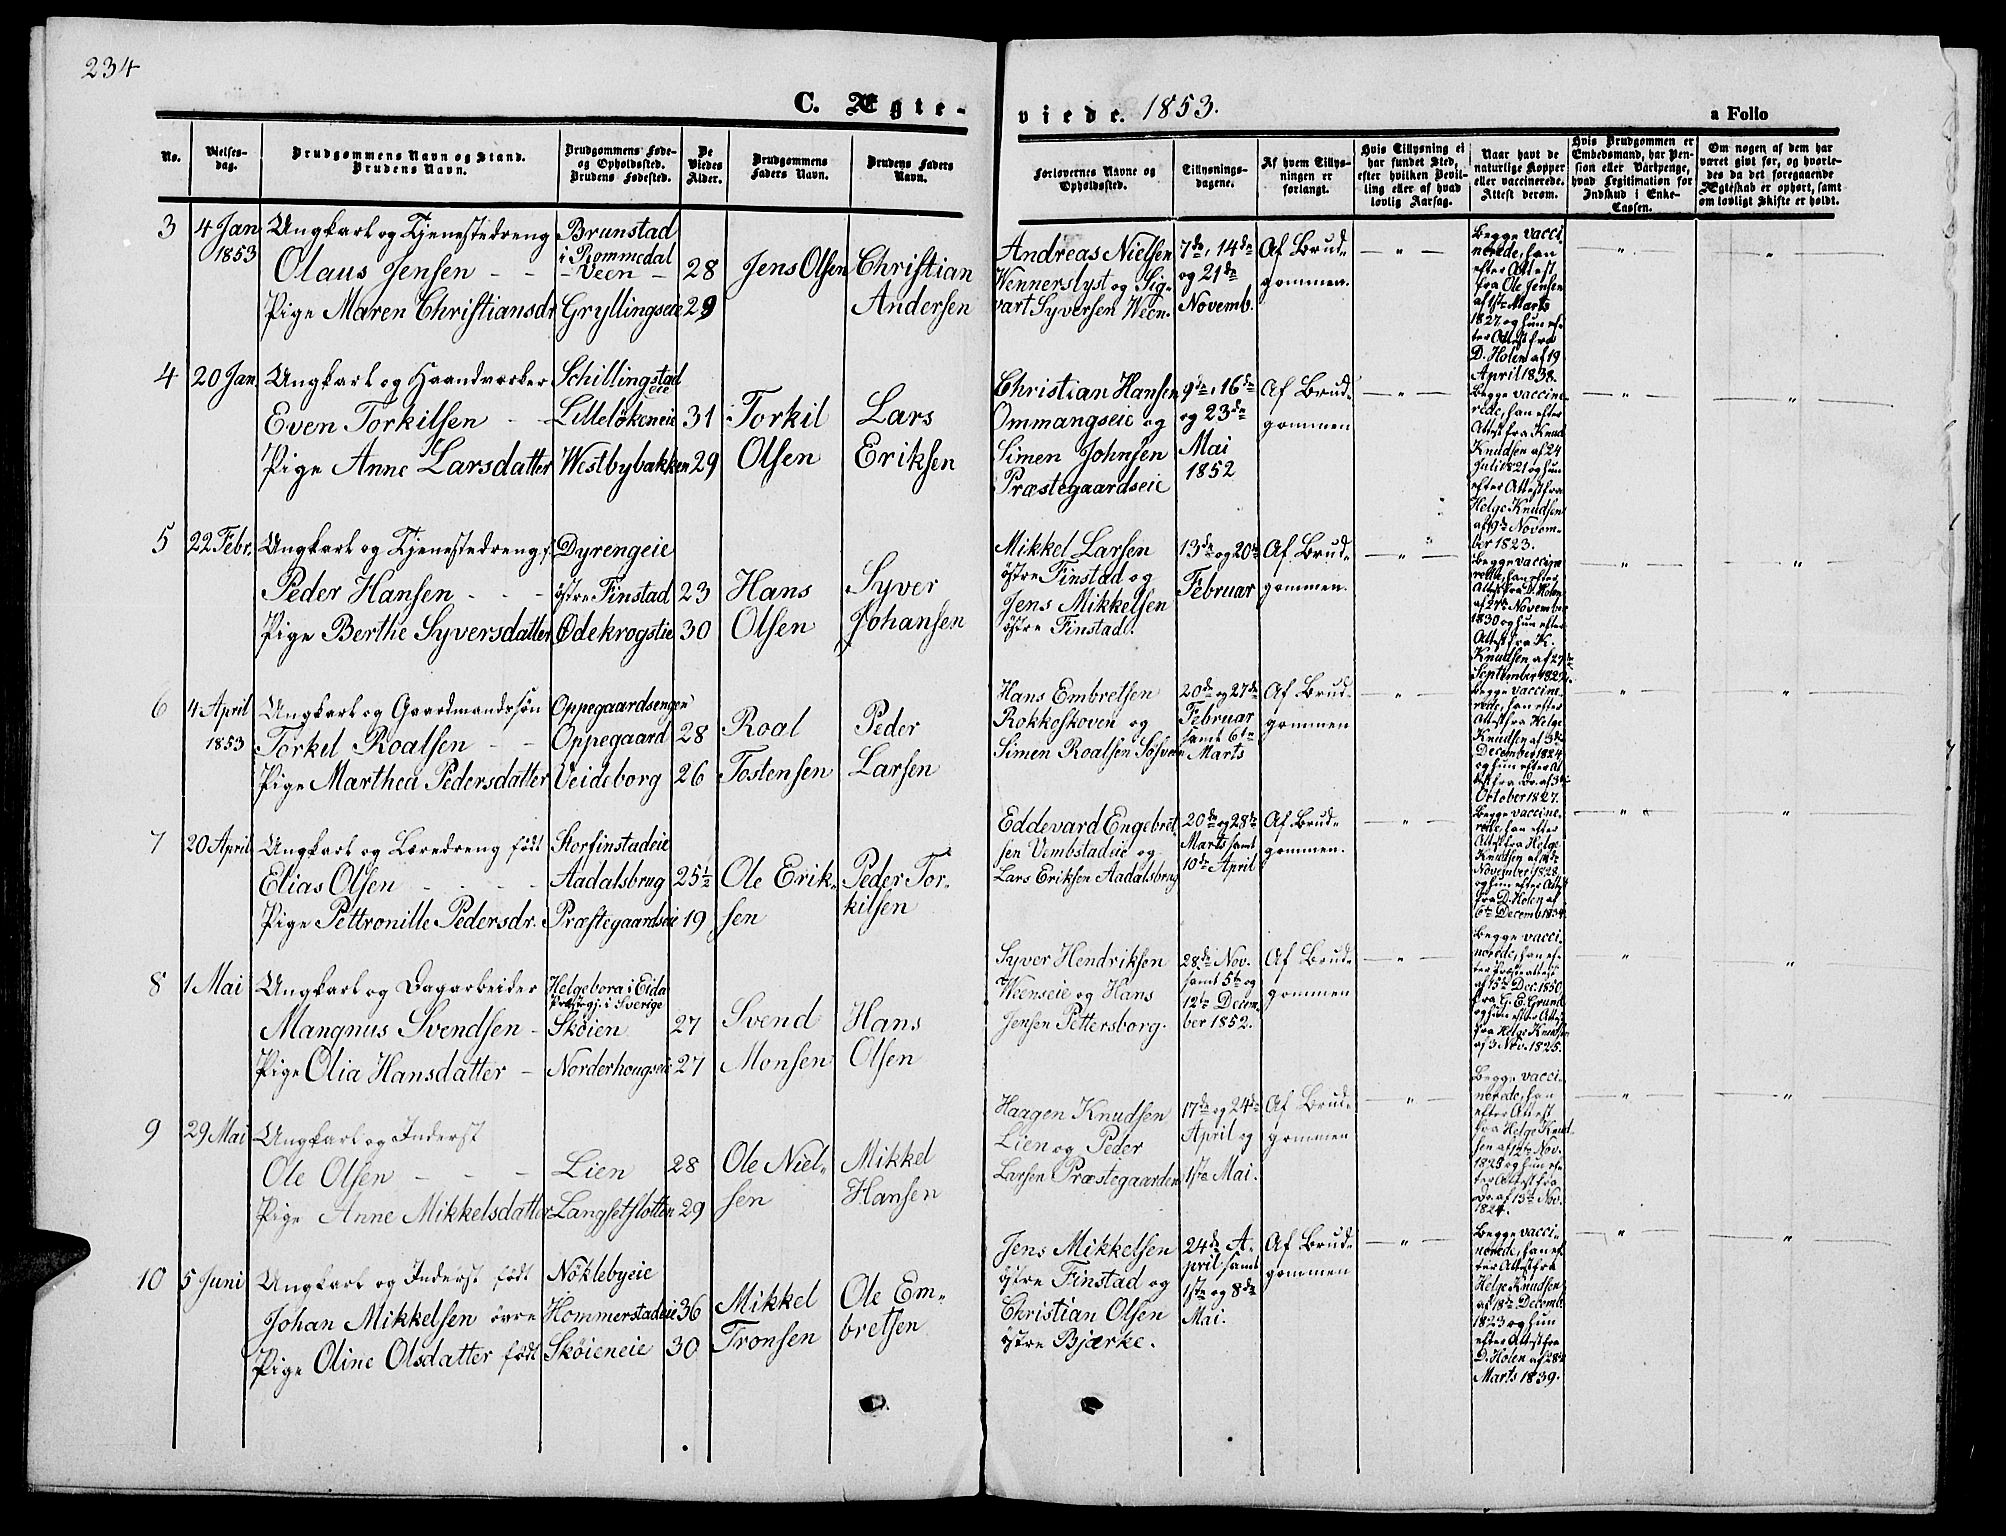 234
C. Ægte-
viede. 1853.
a Folio
No.
Vielses-
dag.
Brudgommens Navn og Stand.
Brudens Navn.
Brudgommens Føde-
og Opholdssted.
Brudens Fødested.
De
Viedes
Alder.
Brudgommens
Faders Navn.
Brudens Faders
Navn.
Forlovernes Navne og
Opholdssted.
Tillysnings-
dagene.
Af hvem Tillys-
ningen er
forlangt.
Hvis Tillysning ei
har fundet Sted,
efter hvilken Bevil-
ling eller af hvad
lovlig Aarsag.
Naar havt de
naturlige Kopper
eller vaccinerede.
Attest derom.
Hvis Brudgommen er
Embedsmand, har Pen-
sion eller Vartpenge,
hvad Legitimation for
Indskud i Enke-
Cassen.
Om nogen af dem har
været givt før, og hvorle-
des da det foregaaende
Ægteskab er ophørt, samt
om lovligt Skifte er holdt.
3
4 Jan
1853
Ungkarl og Tjenestedreng
Olaus Jensen - -
Pige Maren Christiansdr
Brunstad
i Rommedal
- Veen -
Gryllingseie
28
29
Jens Olsen
Christian
Andersen
Andreas Nielsen
Wennerslyst og Sig-
vart Syversen Ween.
7de, 14de
og 21de
Novemb.
Af Brud-
gommen.
— " —
Begge vacci-
nerede, han
efter Attest
fra Ole Jensen
af 1ste Marts
1827 og hun ef-
ter Attest fra
D. Holen af 19
April 1838.
— " —
— " —
4
20 Jan.
Ungkarl og Haandværker
Even Torkilsen - -
Pige Anne Larsdatter
Schillingstad
eie
Lilleløkeneie
Westbybakken
31
29
Torkil
Olsen
Lars
Eriksen
Christian Hansen
Ommangseie og
Simen Johnsen
Præstegaardseie
9de, 16de
og 23de
Mai
1852
Af Brud-
gommen
— " —
Begge vaccine-
rede, han efter
Attest fra Knud
Knudsen af 24
Juli 1821 og hun
efter Attest fra
Helge Knudsen
af 9de Novem-
ber 1823.
— " —
— " —
5
22 Febr.
Ungkarl og Tjenestedreng f.
Peder Hansen - - -
Pige Berthe Syversdatter
Dyrengeie
østre Finstad
Ødekrogstie
23
30
Hans
Olsen
Syver
Johansen
Mikkel Larsen
østre Finstad og
Jens Mikkelsen
østre Finstad.
13de og 20de
Februar
Af Brud-
gommen.
— " —
Begge vaccine-
rede, han efter
Attest fra D. Holen
af 27de November
1830 og hun efter
Attest fra K.
Knudsen af 27de
— " —
— " —
6
4 April
1853
Ungkarl og Gaardmandssøn
Torkel Roalsen - -
Pige Marthea Pedersdatter
Oppegaardsengen
Oppegaard
Veideborg
28
26
Roal
Tostensen
Peder
Larsen
Hans Embretsen
Rokkoskoven og
Simen Roalsen
20de og 27de
Februar
samt 6te
Marts
Af Brud-
gommen
— " —
Begge vaccine-
rede, han efter
Attest fra Helge
Knudsen af 3de
December 1824
og hun efter At-
test fra Do. af 3die
October 1827.
— " —
— " —
7
20 April
Ungkarl og Læredreng født
Elias Olsen - - - -
Pige Pettronille Pedersdr.
Storfinstadeie
Aadalsbrug
Præstegaardseie
25½
19
Ole Erik-
sen
Peder Tor-
kilsen
Eddevard Engebret-
sen Vembstadeie og
Lars Eriksen Aadalsbrug
20de og 28de
Marts samt
10de April
Af Brud-
gommen.
— " —
Begge vaccine-
rede, han efter
Attest fra Helge
Knudsen af 4de
November 1828.
og hun efter Attest
fra D. Holen af
6te Decemb 1834.
— " —
— " —
8
1 Mai
Ungkarl og Dagarbeider
Mangnus Svendsen -
Pige Olia Hansdatter -
Helgebora i Eida
Præstegj. i Sverige
Skøien
Norderhougseie
27
27
Svend
Monsen
Hans
Olsen
Syver Hendriksen
Weenseie og Hans
Jensen Pettersborg.
28de Nov.
samt 5te og
12te Decem-
ber 1852.
Af Brud-
gommen
— " —
Begge vacci-
nerede, han ef-
ter Præsteattest
af 15de Dec. 1850
fra G. E. Grund
og hun efter Attest
fra Helge Knudsen
af 3 Nov. 1825.
— " —
— " —
9
29 Mai
Ungkarl og Inderst
Ole Olsen - - -
Pige Anne Mikkelsdatter
Lien
Langsetslotten
28
29
Ole Niel-
sen
Mikkel
Hansen
Haagen Knudsen
Lien og Peder
Larsen Præstegaarden
17de og 24de
April og
1ste Mai.
Af Brud-
gommen
— " —
Begge vacci-
nerede, han
efter Attest
fra Helge Knud-
sen af 12te Nov.
1828 og hun ef-
ter Attest fra
Do. af 13de Nov.
1824.
— " —
— " —
10
5 Juni
Ungkarl og Inderst født
Johan Mikkelsen øvre
Pige Oline Olsdatter født
Nøklebyeie
Hommerstadeie
Skøieneie
36
30
Mikkel
Tronsen
Ole Em-
bretsen
Jens Mikkelsen
østre Finstad og
Christian Olsen
østre Bjærke.
24de A-
pril samt
1ste og 8de
Mai.
Af Brud-
gommen
— " —
Begge vacci-
nerede, han ef-
ter Attest fra
Helge Knudsen
af 18de Decemb
1823 og hun
efter Attest fra
D. Holen af 28de
Marts 1839.
— " —
— " —